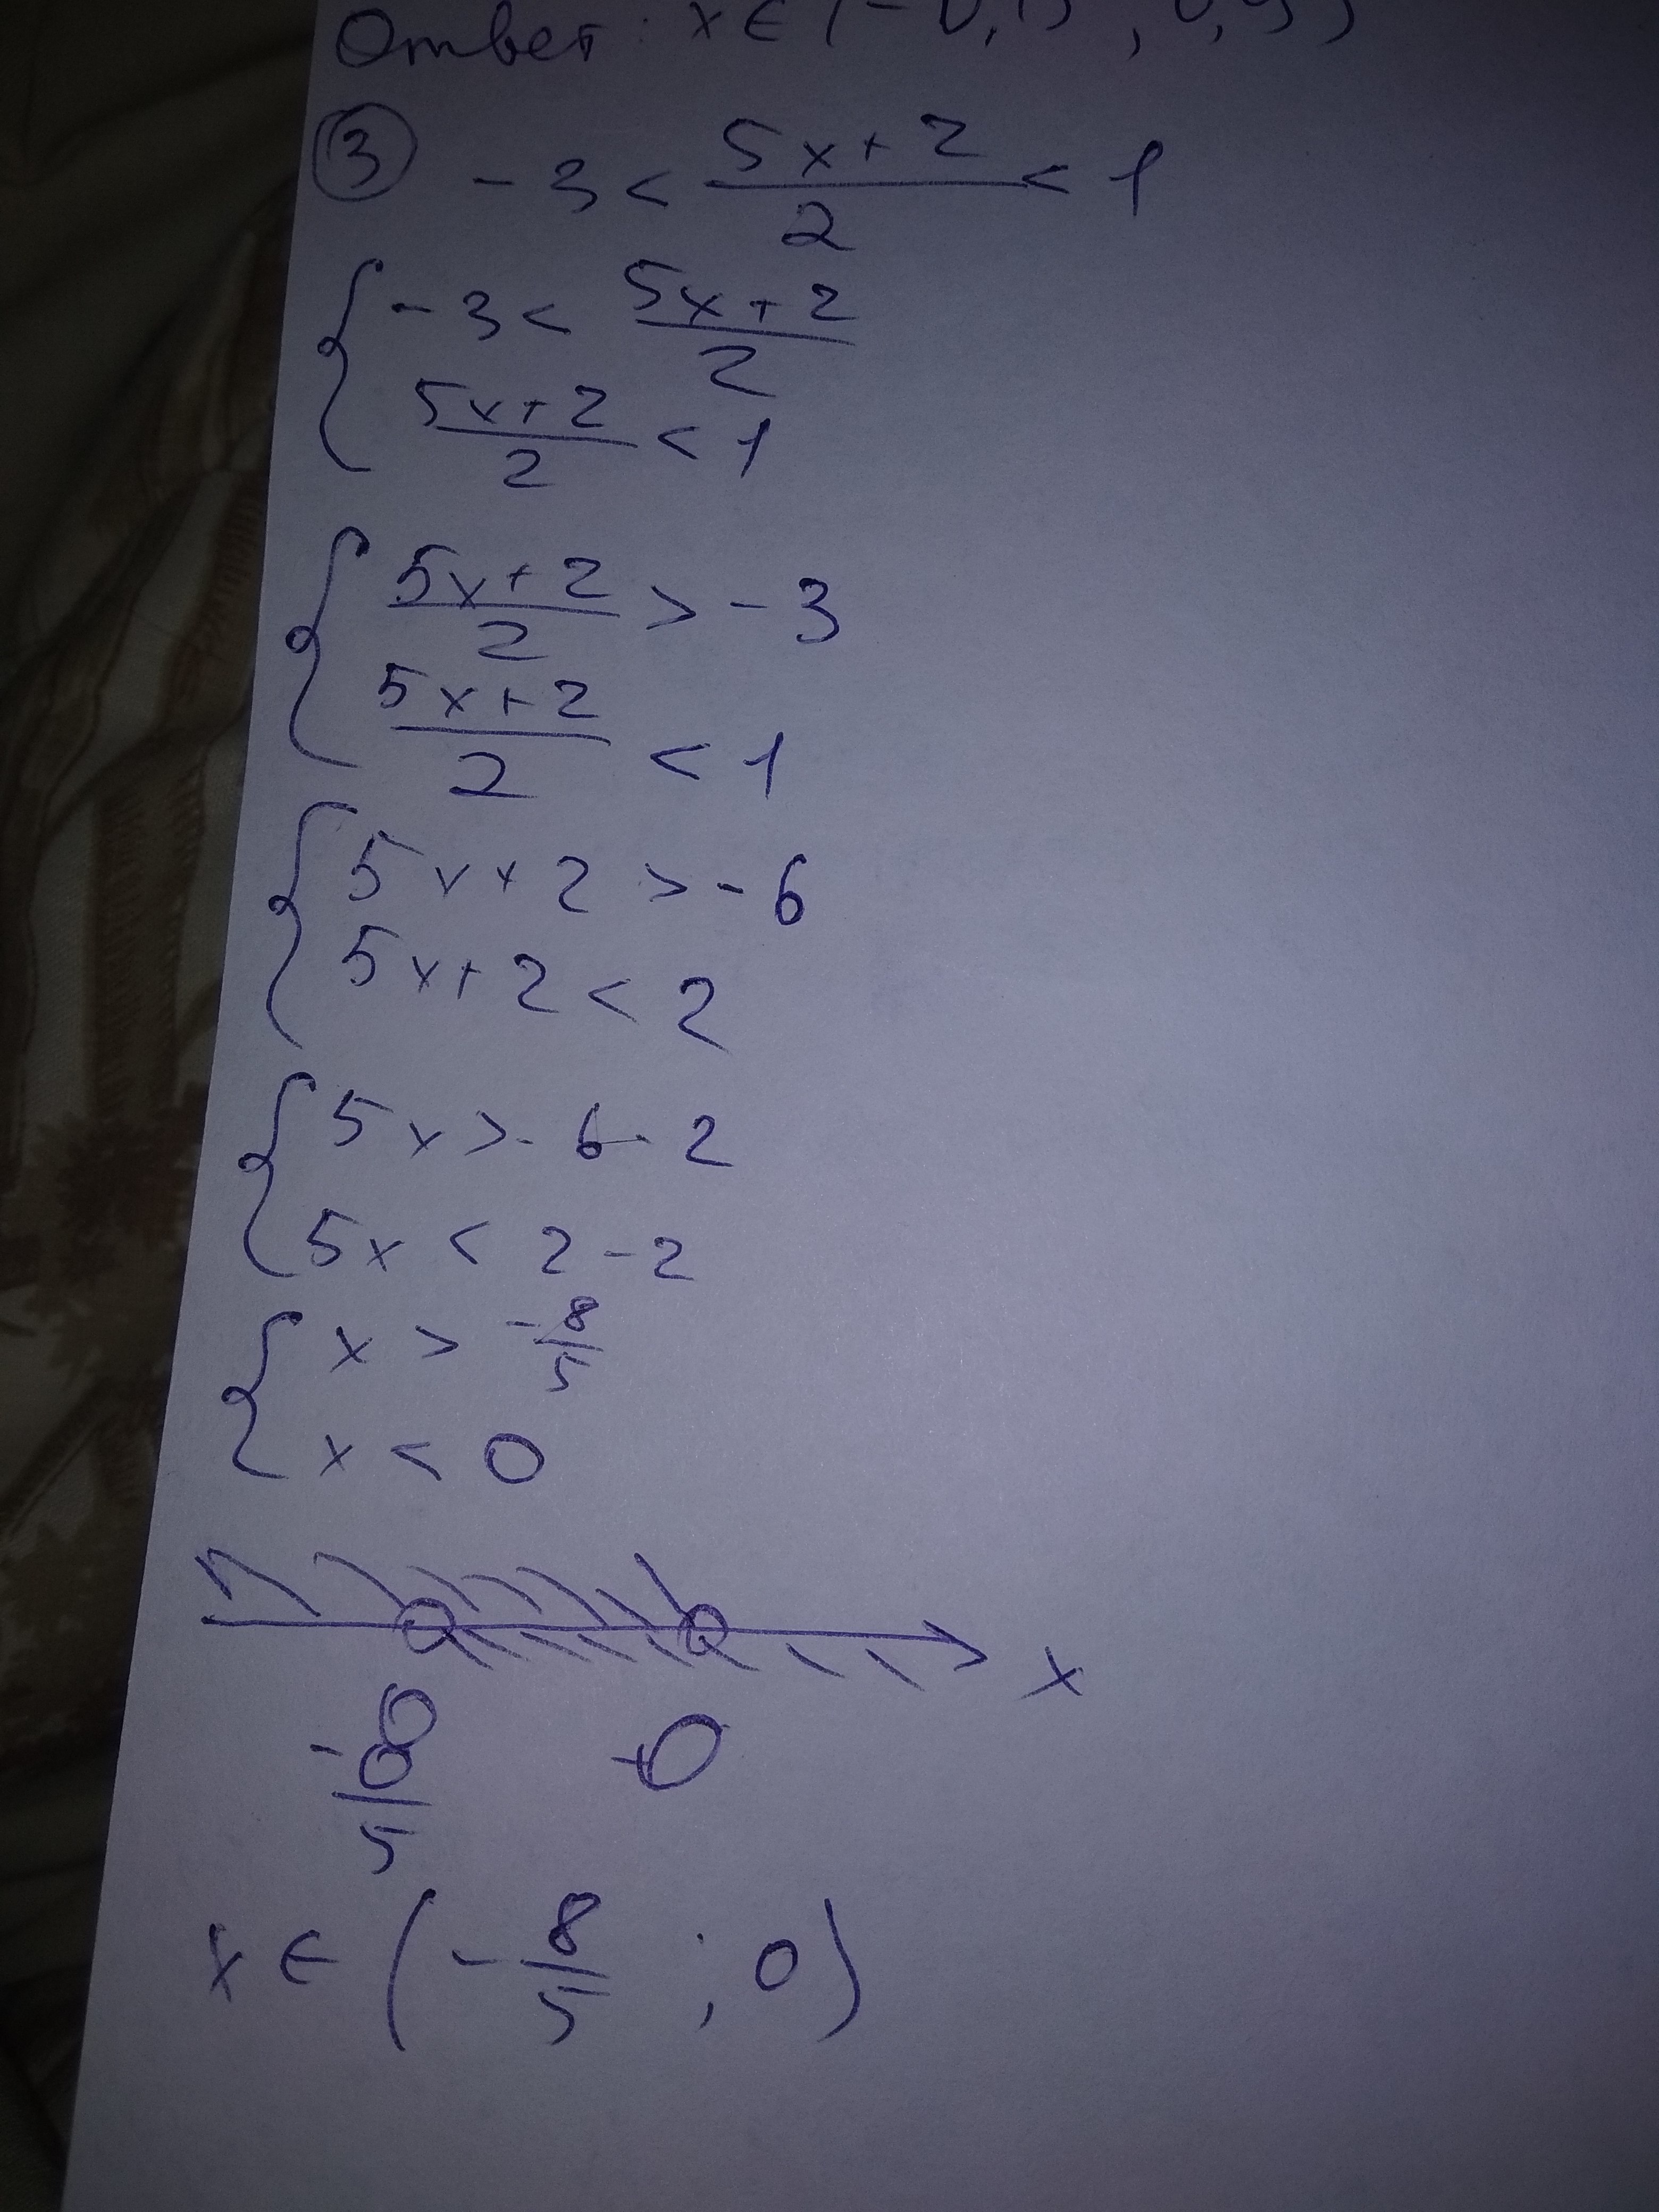 Ответ: x ∈ (-0,
③ -3 < (5x+2)/2 < 1
{ -3 < (5x+2)/2
(5x+2)/2 < 1
{ (5x+2)/2 > -3
(5x+2)/2 < 1
{ 5x+2 > -6
5x+2 < 2
{ 5x > -6-2
5x < 2-2
{ x > -8/5
x < 0
x
-8/5 0
x ∈ (-8/5 ; 0)